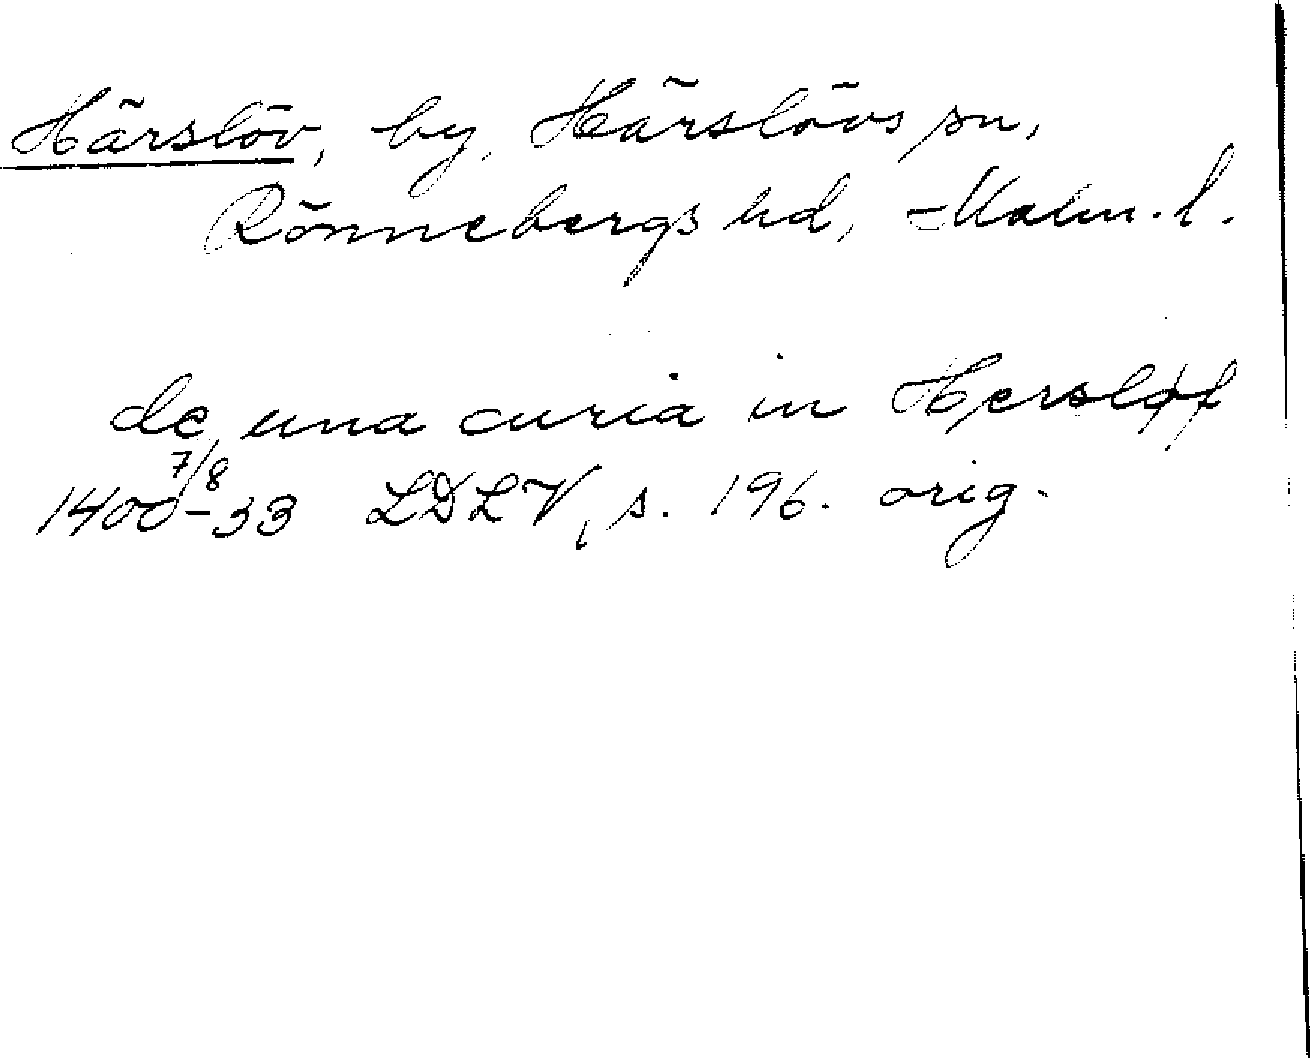 Härslöv, by, Härslövs sn,
Rönnebergs hd, Malm. l.
de una curia in Hersløf
1400-33 7/8 LDLV, s. 196. orig.